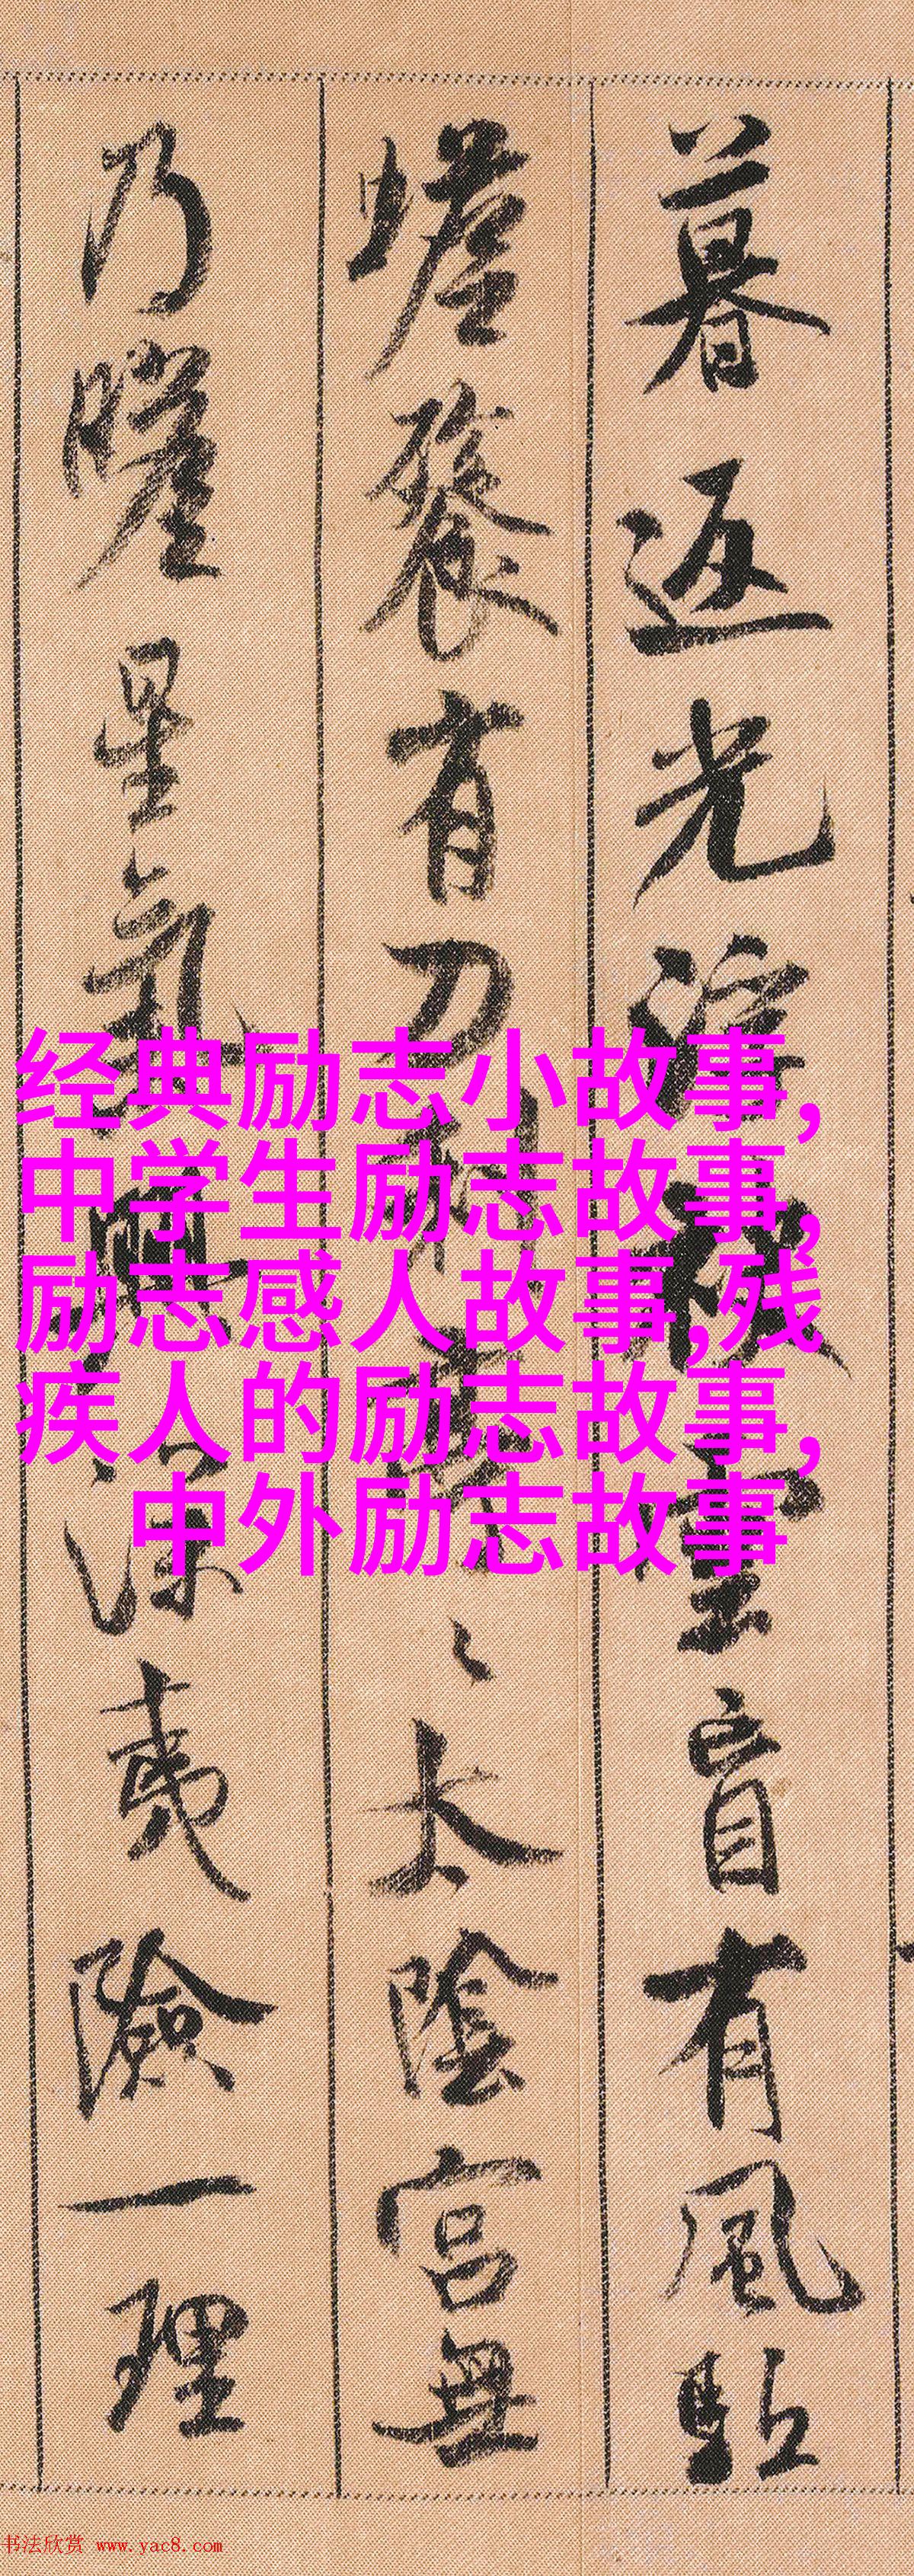 暮返光淫視靈盲有風點
螘養有刀利
太陰宮無
乃躔星氣
深夷險一理
经典励志小故事,
中学生励志故事,
励志感人故事,残
疾人的励志故事,
中外励志故事
书法欣赏 www.yac8.com